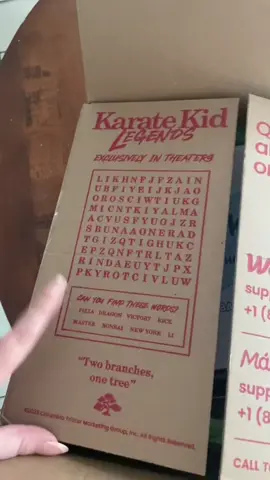 Karate Kid
LEGENDS
EXCLUSIVELY IN THEATERS
LIKHNFJFZAIN
UBFIVEIJKJAO
OROSCIWTIUKG
MICNTKIYALMA
ACVUSFYUGJZR
SBUNAAGNERAD
TGIZQTIGHUKC
EPZQNFTRLTAZ
RINDAEUYTJPX
PKYROTCIVLUW
CAN YOU FIND THESE WORDS?
PIZZA DRAGON VICTORY KICK
MASTER BONSAI NEW YORK LI
"Two branches,
one tree"
All Rights Reserved.
supp
+1 (8
supp
+1 (8
CALL TO